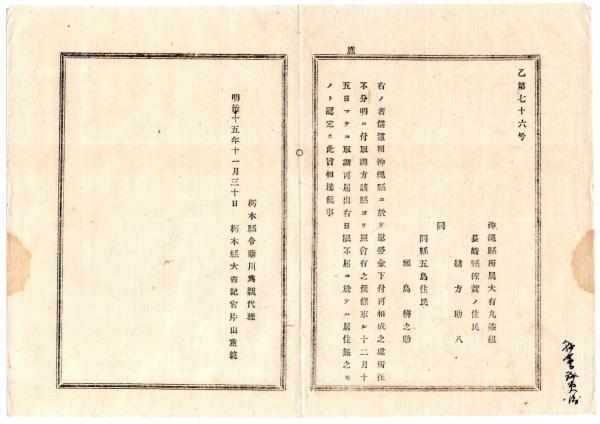 乙第七十六号
沖縄縣所属大有丸乗組
長崎縣佐賀ノ住民
緒方助八
同
同縣五島住民
福島勝之助
右ノ者儀這囘沖縄縣ニ於テ慰労金下付可相成之處所在
不分明ニ付取調方該縣ヨリ照會有之候條來ル十二月十
五日マテニ取調可届出有日限不届ニ於テハ居住無之モ
ノト認定ス此旨相達候事
明治十五年十一月三十日
栃木縣令藤川為親代理
栃木縣大書記官片山重範